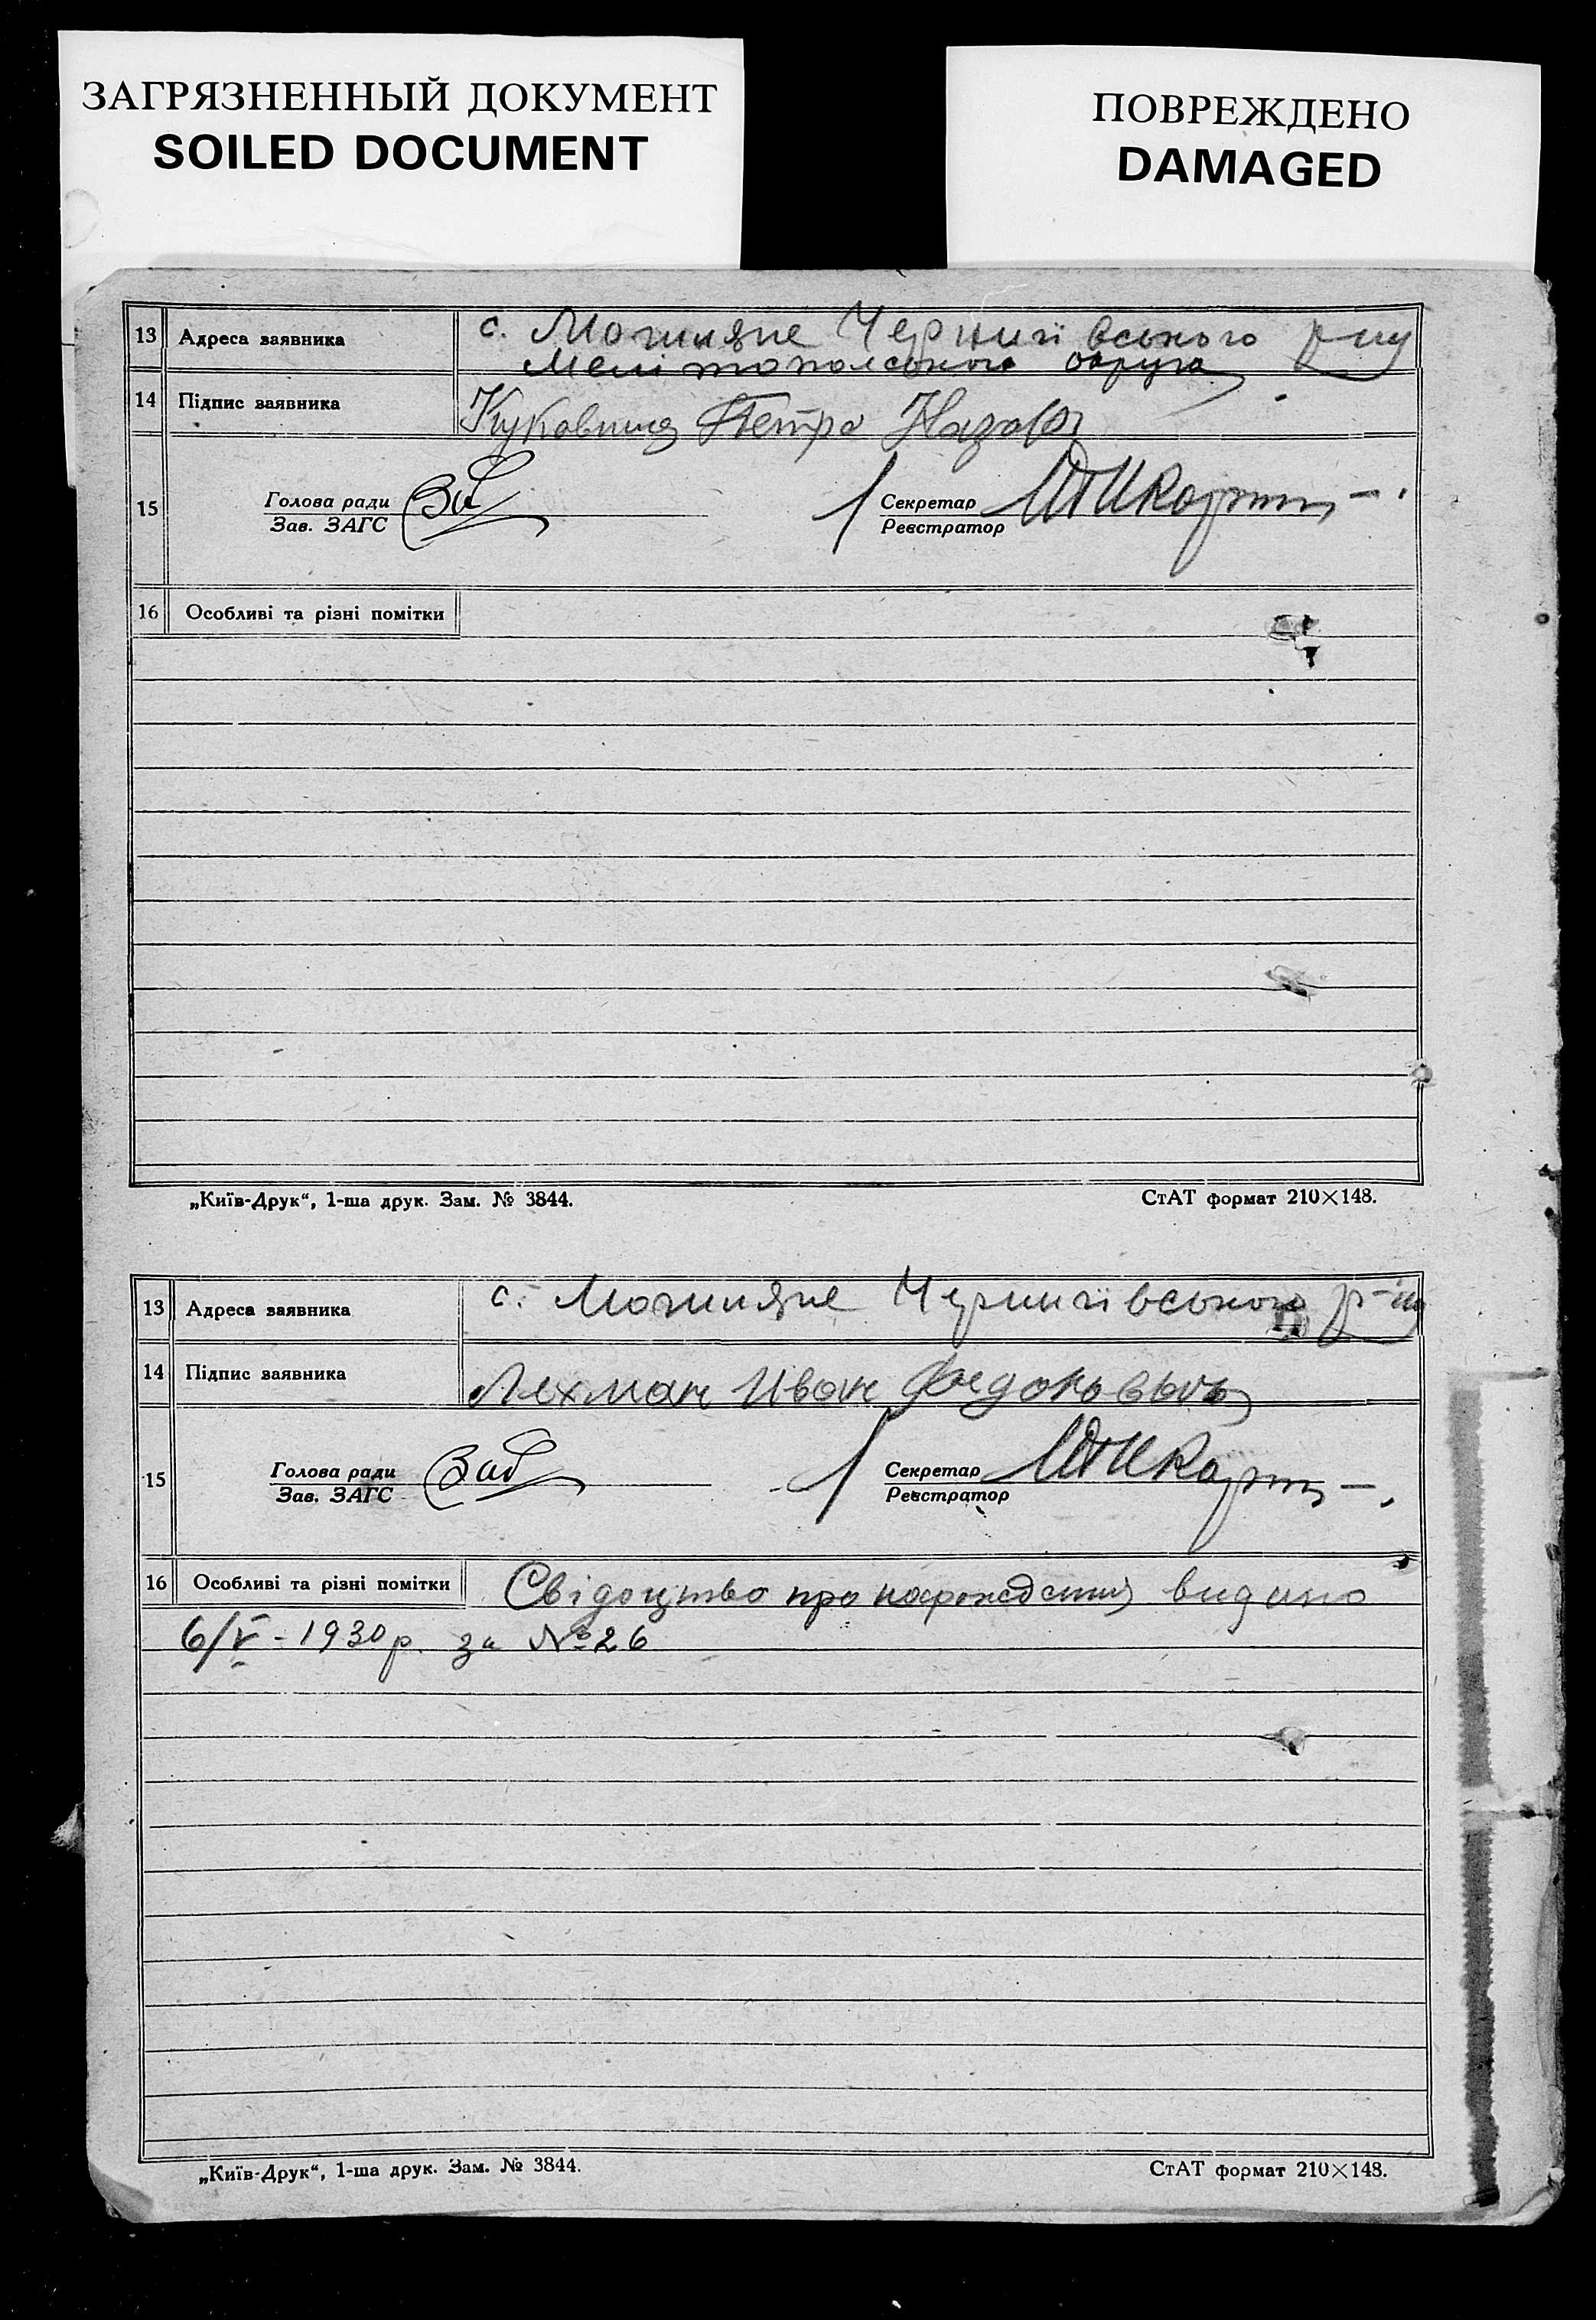 ЗАГРЯЗНЕННЫЙ ДОКУМЕНТ
SOILED DOCUMENT
ПОВРЕЖДЕНО
DAMAGED
13 Адреса заявника с. Могиляне Чернигівського р-ну
Мелітопольського округа
14 Підпис заявника Петро Назар
15 Голова ради Секретар
Зав. ЗАГС Реєстратор
16 Особливі та різні помітки
„Київ-Друк“, 1-ша друк. Зам. № 3844. СтАТ формат 210×148.
13 Адреса заявника с. Могиляне Чернигівського р-ну
14 Підпис заявника Лехман Иван
15 Голова ради Секретар
Зав. ЗАГС Реєстратор
16 Особливі та різні помітки Свідоцтво про народження видано
6/V - 1930 р. за № 26
„Київ-Друк“, 1-ша друк. Зам. № 3844. СтАТ формат 210×148.